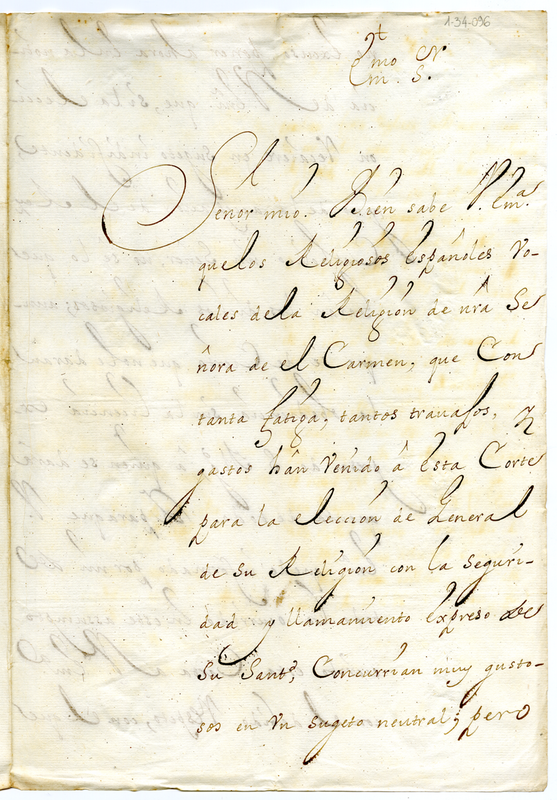 1-34-096
Emmo. Sr.
Señor mio. Bien sabe V. Emª
que los Religiosos Españoles Vo-
cales de la Religion de nrâ Se
ñora de el Carmen, que Con
tanta fatiga, tantos travajos, y
gastos hân Venido â esta Corte
para la eleccion de General
de su Religion con la seguri-
dad y llamamiento expreso de
Su Santd, Concurrian muy gusto-
sos en Vn sugeto neutral; pero